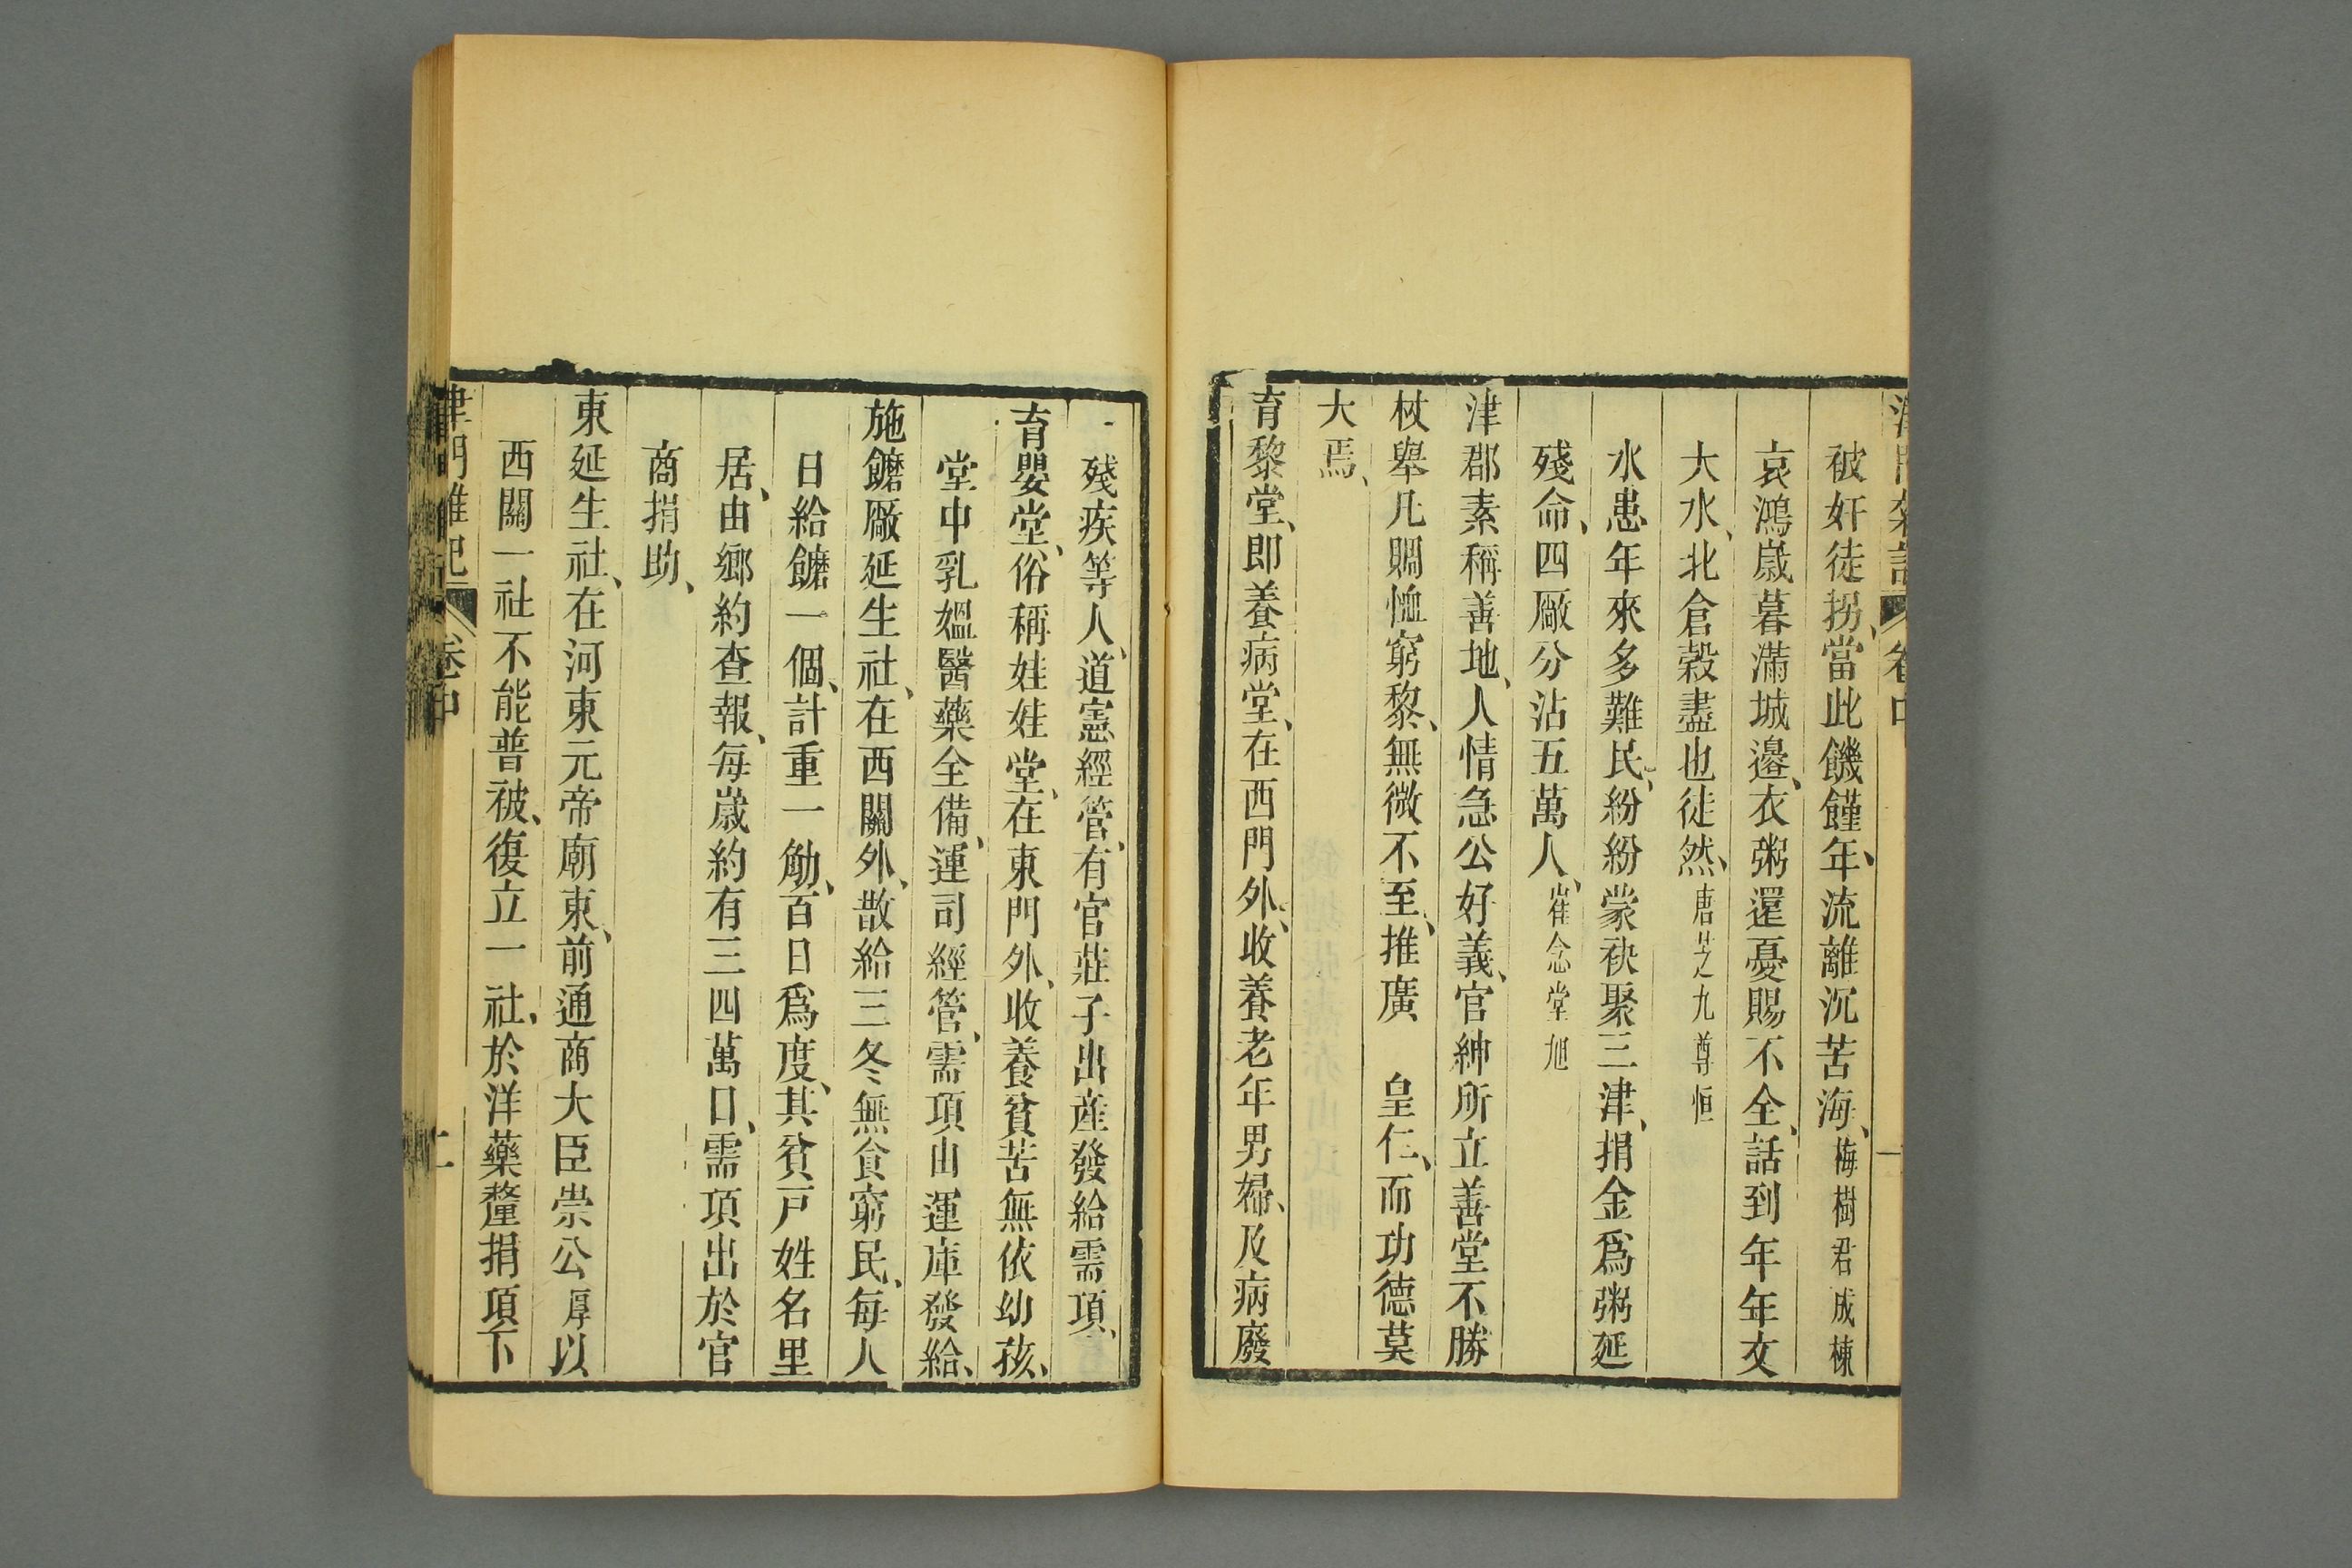 津門雜記 卷中
被奸徒拐、當此饑饉年、流離沉苦海、梅樹君成棟
哀鴻歲暮滿城邊、衣粥還憂賜不全、話到年年交
大水、北倉穀盡也徒然、唐芝九尊恒
水患年來多難民、紛紛蒙袂聚三津、捐金爲粥延
殘命、四廠分沾五萬人、崔念堂旭
津郡素稱善地、人情急公好義、官紳所立善堂不勝
枚舉凡賙恤窮黎、無微不至、推廣 皇仁、而功德莫
大焉、
育黎堂、即養病堂、在西門外、收養老年男婦、及病廢
殘疾等人、道憲經管、有官莊子出產發給需項、
育嬰堂、俗稱娃娃堂、在東門外、收養貧苦無依幼孩、
堂中乳媼醫藥全備、運司經管、需項由運庫發給、
施饝廠延生社、在西關外、散給三冬無食窮民、每人
日給饝一個、計重一觔、百日爲度、其貧戸姓名里
居、由鄉約查報、每歲約有三四萬口、需項出於官
商捐助、
東延生社、在河東元帝廟東、前通商大臣崇公厚以
西關一社不能普被、復立一社、於洋藥釐捐項下
津門雜記 卷中 二